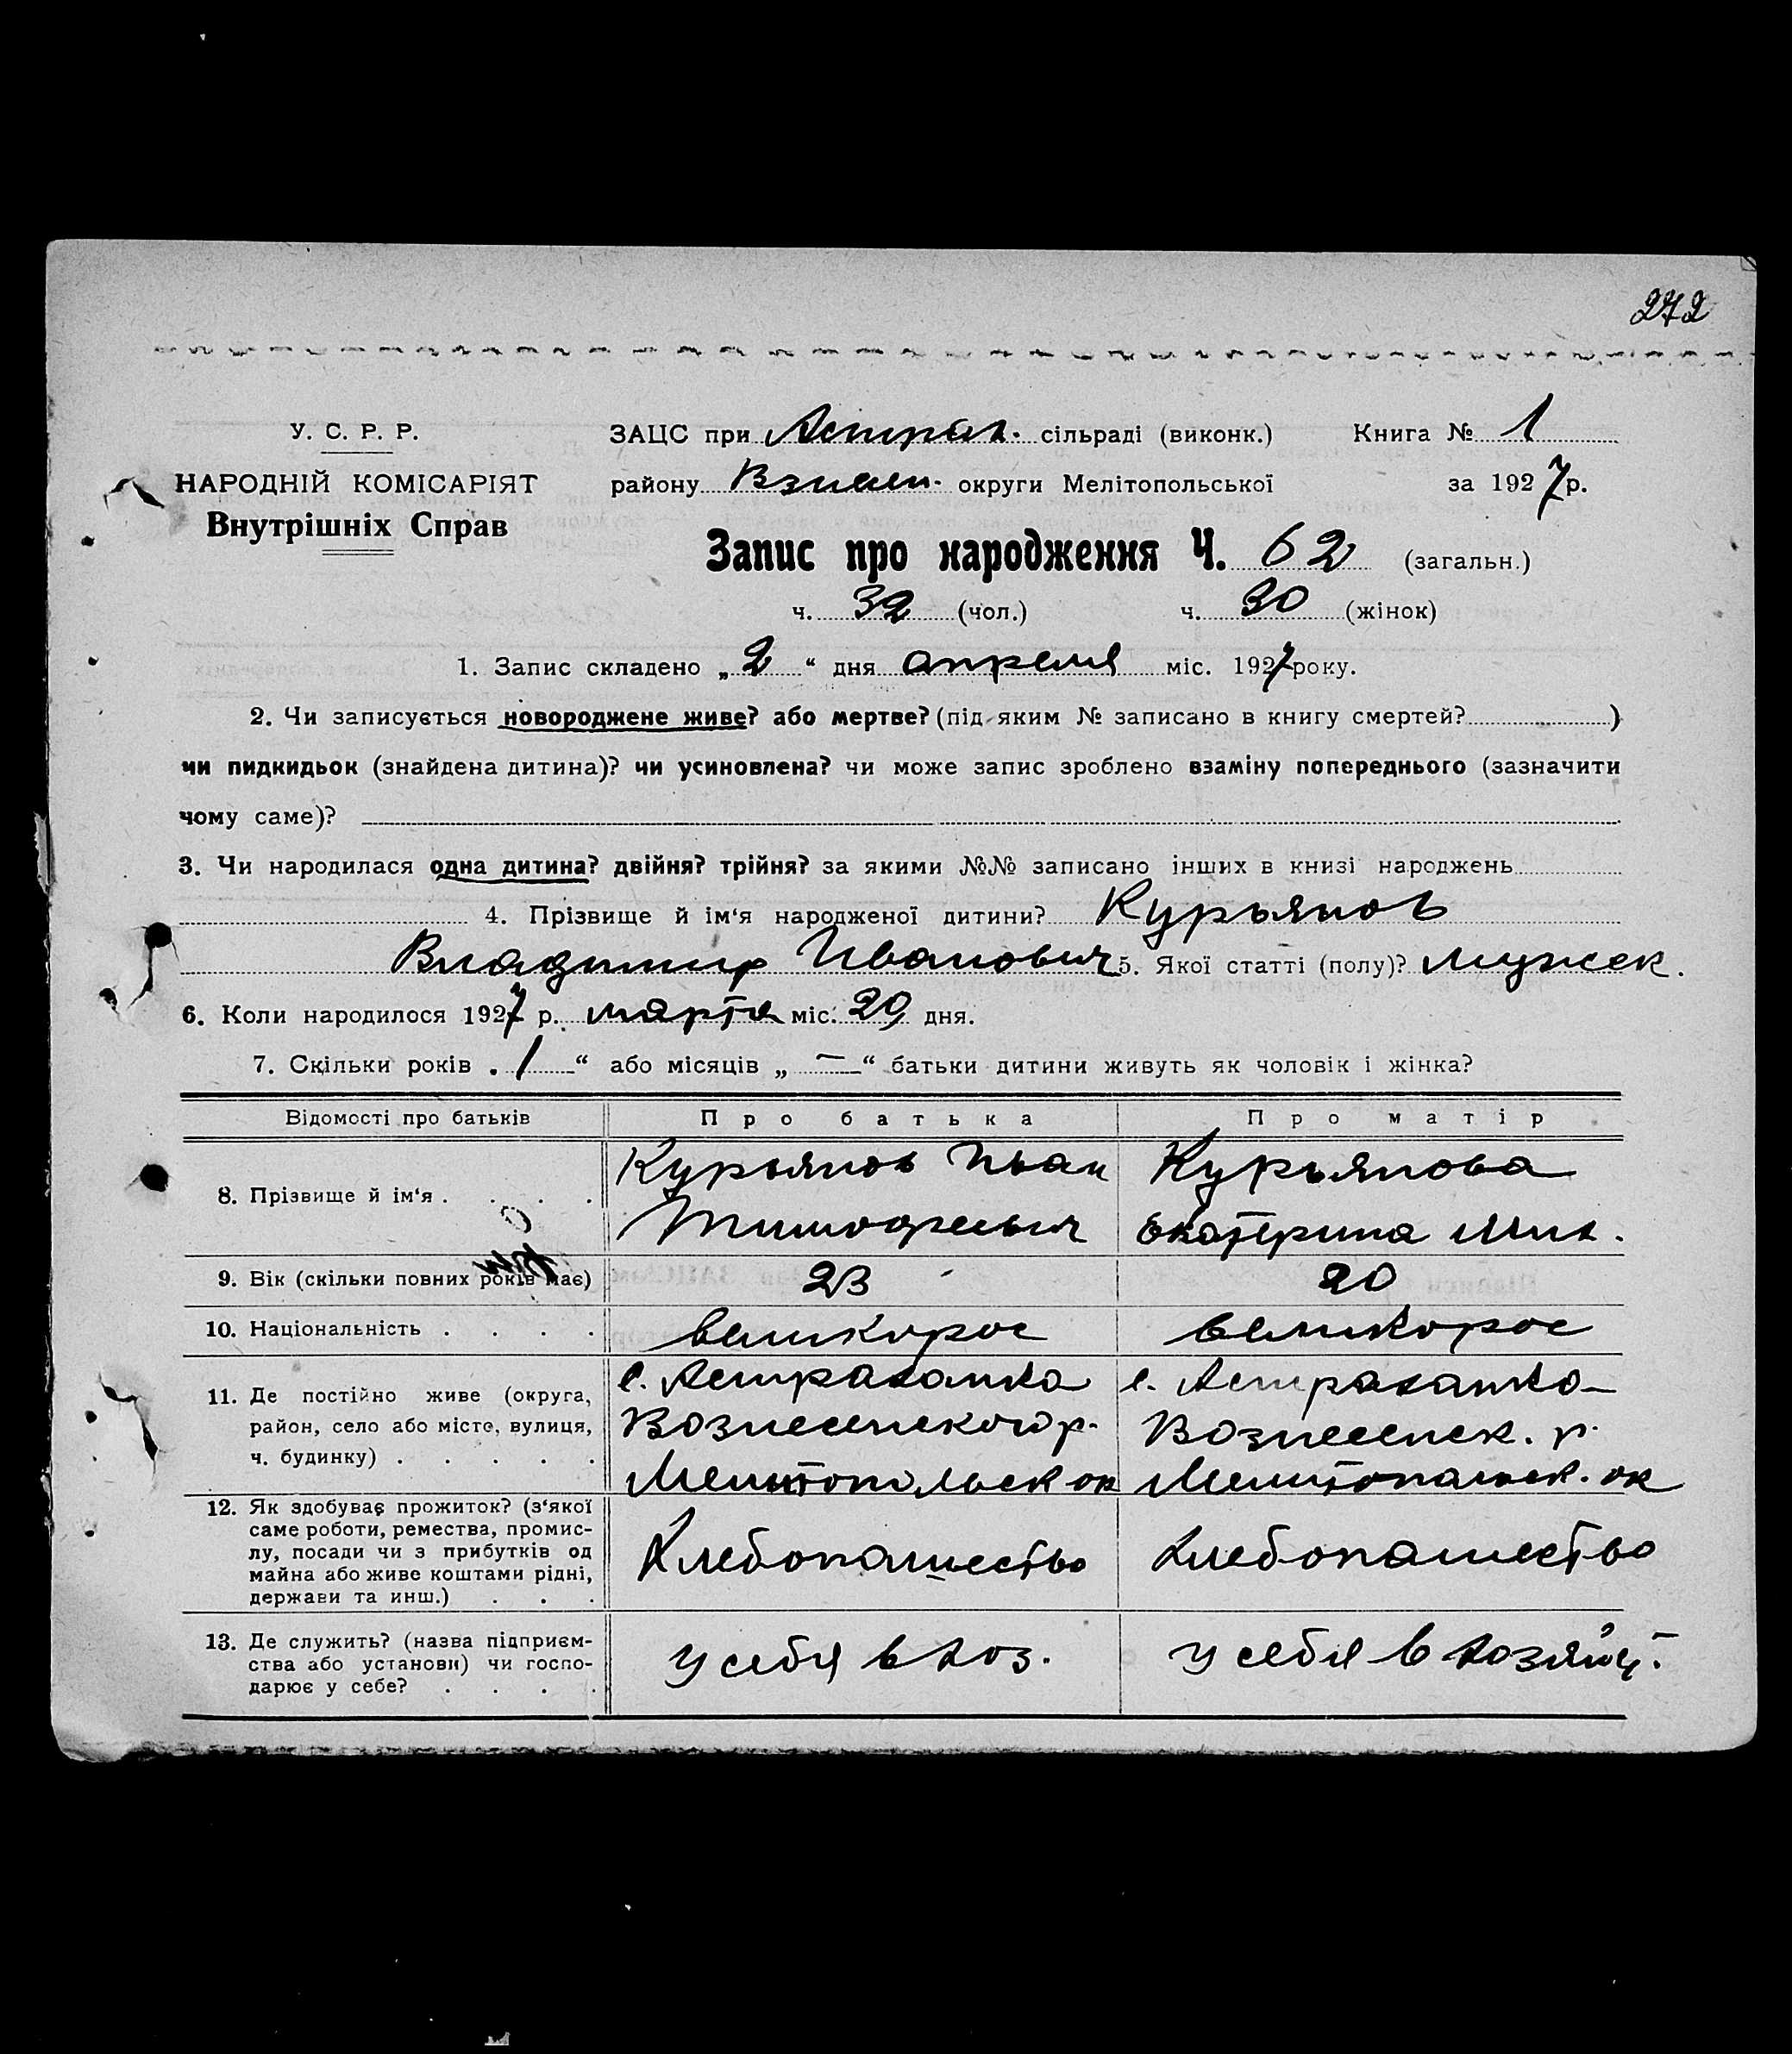 272
У. С. Р. Р.
НАРОДНІЙ КОМІСАРІЯТ
Внутрішніх Справ
ЗАЦС при Астрах. сільраді (виконк.) Книга № 1
району округи Мелітопольської за 1927 р.
Запис про народження Ч. 62 (загальн.)
ч. 32 (чол.) ч. 30 (жінок)
1. Запис складено „2“ дня апреля міс. 1927 року.
2. Чи записується новороджене живе? або мертве? (під яким № записано в книгу смертей? )
чи пидкидьок (знайдена дитина)? чи усиновлена? чи може запис зроблено взаміну попереднього (зазначити
чому саме)?
3. Чи народилася одна дитина? двійня? трійня? за якими №№ записано інших в книзі народжень
4. Прізвище й ім‘я народженої дитини? Курьянов
Владимир Иванович 5. Якої статті (полу)? мужск.
6. Коли народилося 1927 р. марта міс. 29 дня.
7. Скільки років „ 1 “ або місяців „ — “ батьки дитини живуть як чоловік і жінка?
Відомості про батьків Про батька Про матір
8. Прізвище й ім‘я . . . . Курьянов Иван Тимофеевич Курьянова Екатерина Мих.
9. Вік (скільки повних років має) 23 20
10. Національність . . . . великорос великорос
11. Де постійно живе (округа, район, село або місто, вулиця, ч. будинку) . . . . . с. Астраханка Вознесенского р. Мелитопольск ок с. Астраханка Вознесенск. р. Мелитопольск. ок
12. Як здобуває прожиток? (з‘якої саме роботи, ремества, промислу, посади чи з прибутків од майна або живе коштами рідні, держави та инш.) . . . Хлебопашество Хлебопашество
13. Де служить? (назва підприємства або установи) чи господарює у себе? . . . . У себя в хоз. У себя в хозяйс.